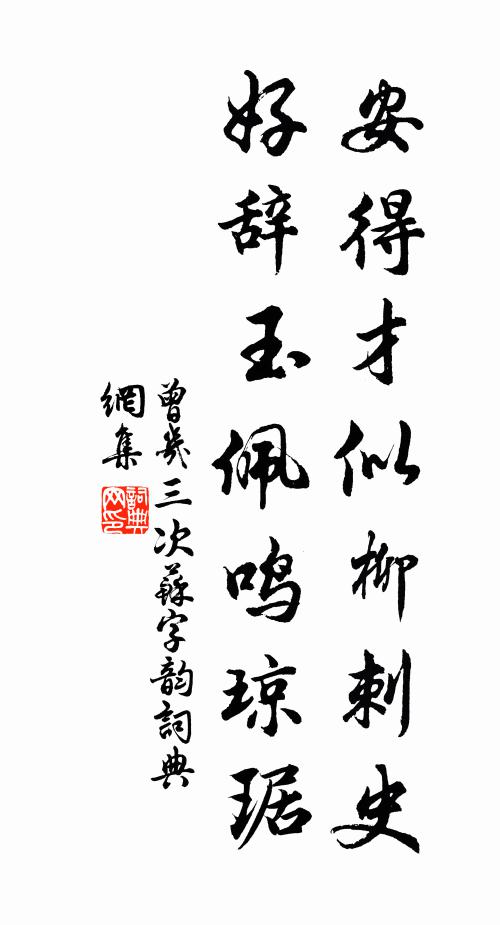 安得才似柳刺史
好辞玉佩鸣琼琚
曾几三次蘇字韵詞典
網集
詞典
网印